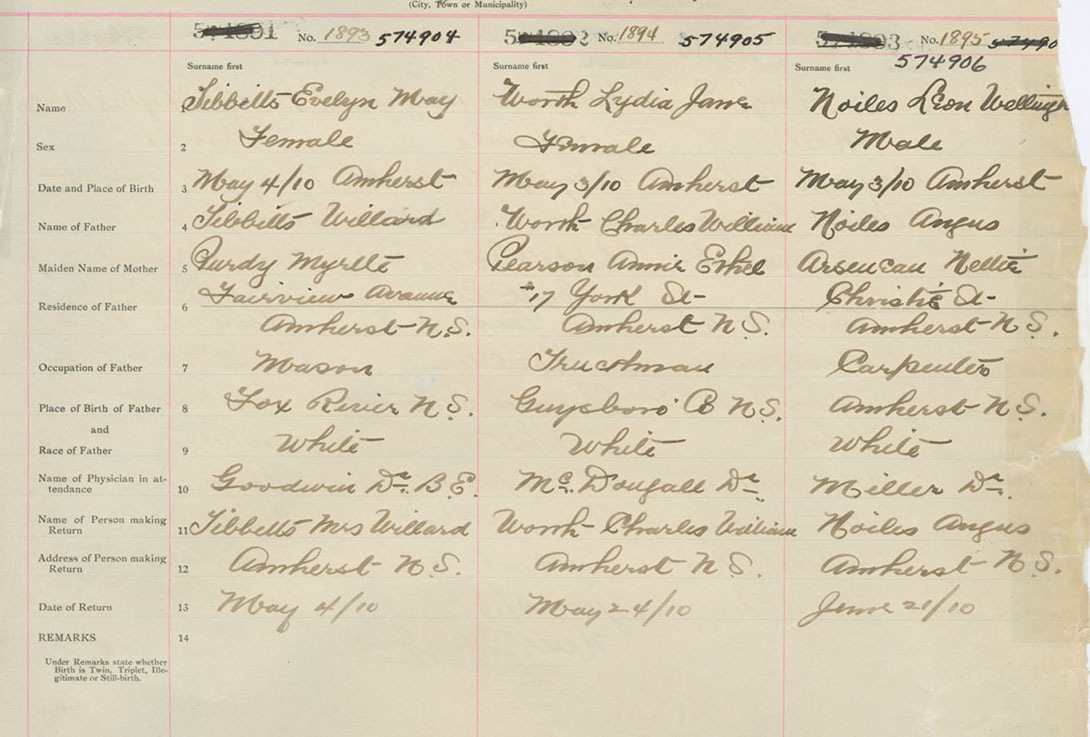 (City, Town or Municipality)
No. 1893 574904 No. 1894 574905 No. 1895 57490
574906
Surname first Surname first Surname first
Name 1 Tibbetts Evelyn May Worth Lydia Jane Noiles Leon
Sex 2 Female Female Male
Date and Place of Birth 3 May 4/10 Amherst May 3/10 Amherst May 3/10 Amherst
Name of Father 4 Tibbetts Willard Worth Charles William Noiles Angus
Maiden Name of Mother 5 Purdy Myrtle Pearson Annie Ethel Arseneau Nellie
Residence of Father 6 Fairview Avenue #17 York St- Christie St-
Amherst N.S. Amherst N S. Amherst N S.
Occupation of Father 7 Mason Truckman Carpenter
Place of Birth of Father 8 Fox River N S. Guysboro Co N S. Amherst N S.
and
Race of Father 9 White White White
Name of Physician in at-
tendance 10 Goodwin Dr. B E. Mc Dougall Dr. Miller Dr.
Name of Person making
Return 11 Tibbetts Mrs Willard Worth Charles William Noiles Angus
Address of Person making
Return 12 Amherst N S. Amherst N S. Amherst N S.
Date of Return 13 May 4/10 May 24/10 June 21/10
REMARKS 14
Under Remarks state whether
Birth is Twin, Triplet, Ille-
gitimate or Still-birth.